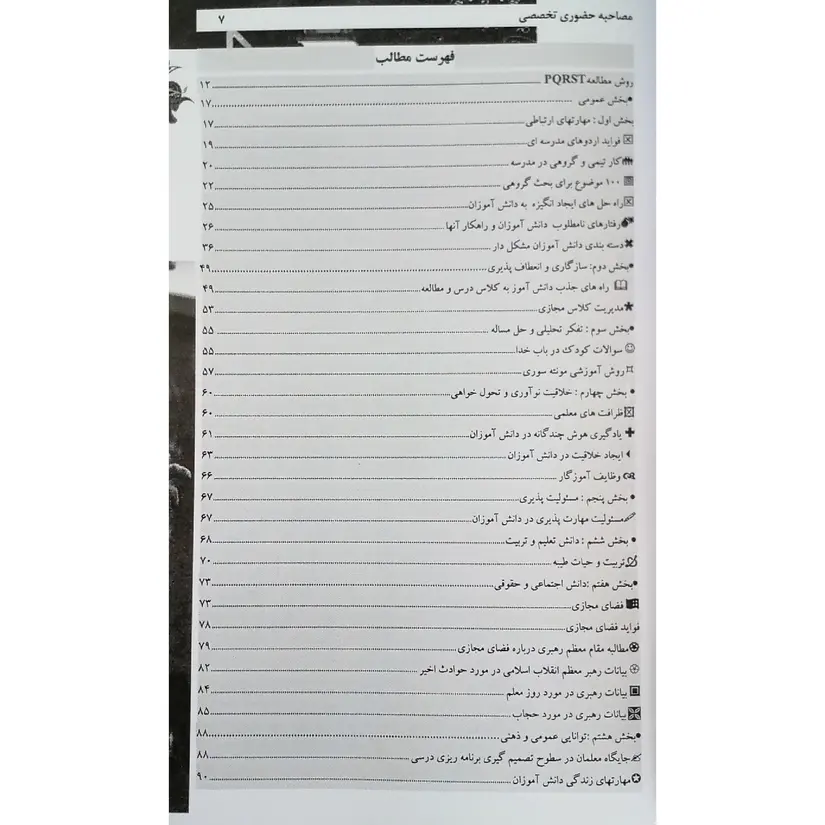 مصاحبه حضوری تخصصی ۷
فهرست مطالب
روش مطالعه PQRST ۱۲
•بخش عمومی ۱۷
بخش اول : مهارتهای ارتباطی ۱۷
فواید اردوهای مدرسه ای ۱۹
کار تیمی و گروهی در مدرسه ۲۰
۱۰۰ موضوع برای بحث گروهی ۲۲
راه حل های ایجاد انگیزه به دانش آموزان ۲۵
رفتارهای نامطلوب دانش آموزان و راهکار آنها ۲۶
دسته بندی دانش آموزان مشکل دار ۳۶
•بخش دوم: سازگاری و انعطاف پذیری ۴۹
راه های جذب دانش آموز به کلاس درس و مطالعه ۴۹
مدیریت کلاس مجازی ۵۳
•بخش سوم : تفکر تحلیلی و حل مساله ۵۵
سوالات کودک در باب خدا ۵۵
روش آموزشی مونته سوری ۵۷
• بخش چهارم : خلاقیت نوآوری و تحول خواهی ۶۰
ظرافت های معلمی ۶۰
یادگیری هوش چندگانه در دانش آموزان ۶۱
ایجاد خلاقیت در دانش آموزان ۶۳
وظایف آموزگار ۶۶
• بخش پنجم : مسئولیت پذیری ۶۷
مسئولیت مهارت پذیری در دانش آموزان ۶۷
• بخش ششم : دانش تعلیم و تربیت ۶۸
تربیت و حیات طیبه ۷۰
•بخش هفتم :دانش اجتماعی و حقوقی ۷۳
فضای مجازی ۷۳
فواید فضای مجازی ۷۸
مطالبه مقام معظم رهبری درباره فضای مجازی ۷۹
بیانات رهبر معظم انقلاب اسلامی در مورد حوادث اخیر ۸۲
بیانات رهبری در مورد روز معلم ۸۴
بیانات رهبری در مورد حجاب ۸۵
•بخش هشتم :توانایی عمومی و ذهنی ۸۸
جایگاه معلمان در سطوح تصمیم گیری برنامه ریزی درسی ۸۸
مهارتهای زندگی دانش آموزان ۹۰